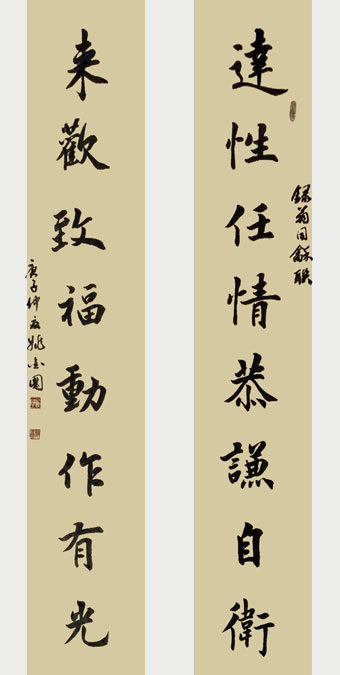 達性任情恭謙自衛
録翁同龢联
来歡致福動作有光
庚子仲夏姚金国